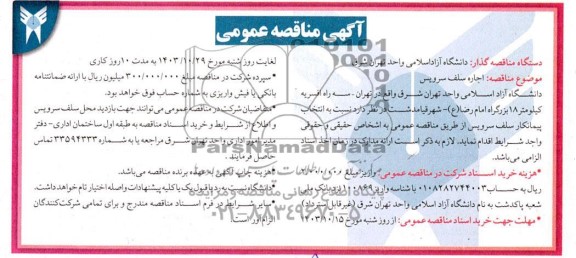 آگهی مناقصه عمومی
دستگاه مناقصه گذار: دانشگاه آزاد اسلامی واحد تهران شرق
موضوع مناقصه: اجاره سلف سرویس
دانشگاه آزاد اسلامی واحد تهران شرق واقع در تهران - سه راه افسریه
کیلومتر ۱۸ بزرگراه امام رضا(ع)- شهر قیامدشت در نظر دارد نسبت به انتخاب
پیمانکار سلف سرویس از طریق مناقصه عمومی به اشخاص حقیقی و حقوقی
واجد شرایط اقدام نماید. لازم به ذکر است ارائه مدارک در زمان اخذ اسناد
الزامی می‌باشد.
• هزینه خرید اسناد شرکت در مناقصه عمومی: واریز مبلغ
ریال به حساب ۰۱۰۸۲۸۲۷۴۴۰۰۳ با شناسه واریز نزد بانک ملی
شعبه پاکدشت به نام دانشگاه آزاد اسلامی واحد تهران شرق (غیرقابل استرداد)
• مهلت جهت خرید اسناد مناقصه عمومی: از روز شنبه مورخ ۱۴۰۳/۱۰/۱۵
لغایت روز شنبه مورخ ۱۴۰۳/۱۰/۲۹ به مدت ۱۰ روز کاری
• سپرده شرکت در مناقصه مبلغ ۳۰۰/۰۰۰/۰۰۰ میلیون ریال با ارائه ضمانتنامه
بانکی یا فیش واریزی به شماره حساب فوق خواهد بود.
• متقاضیان شرکت در مناقصه عمومی می‌توانند جهت بازدید محل سلف سرویس
و اطلاع از شرایط و خرید اسناد مناقصه به طبقه اول ساختمان اداری- دفتر
مدیر امور اداری واحد تهران شرق مراجعه یا به شماره ۳۳۵۹۴۳۳۳ تماس
حاصل فرمایند.
• هزینه چاپ آگهی به عهده برنده مناقصه می‌باشد.
• دانشگاه نسبت به رد یا قبول یک یا کلیه پیشنهادات واصله اختیار تام خواهد داشت.
• سایر شرایط در فرم اسناد مناقصه مندرج و برای تمامی شرکت‌کنندگان
الزام‌آور است.
ParsNamadData
پایگاه اطلاع رسانی مناقصه و مزایده
۰۲۱-۸۸۳۴۹۶۷۰-۵